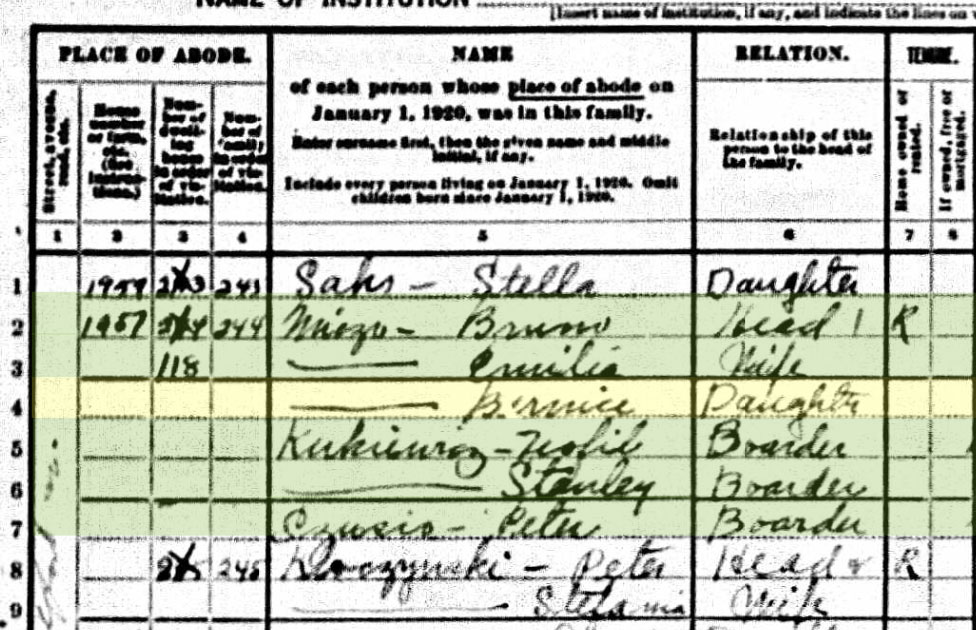 NAME OF INSTITUTION
[Insert name of institution, if any, and indicate the lines on
PLACE OF ABODE.
NAME
of each person whose place of abode on
January 1, 1920, was in this family.
Enter surname first, then the given name and middle
initial, if any.
Include every person living on January 1, 1920. Omit
children born since January 1, 1920.
RELATION.
Relationship of this
person to the head of
the family.
TENURE.
Street, avenue,
road, etc.
House
number
or farm,
etc.
(See
instruc-
tions.)
Num-
ber of
dwell-
ing
house
in order
of vis-
itation.
Num-
ber of
family
in order
of vis-
itation.
Home owned or
rented.
If owned, free or
mortgaged.
1 2 3 4 5 6 7 8
1 1959 243 243 Sahs - Stella Daughter
2 1957 244 244 - Bruno Head 1 R
3 118 Emilia Wife
4 Bernice Daughter
5 Boarder
6 Stanley Boarder
7 - Peter Boarder
8 245 245 - Peter Head R
9 Stefania Wife